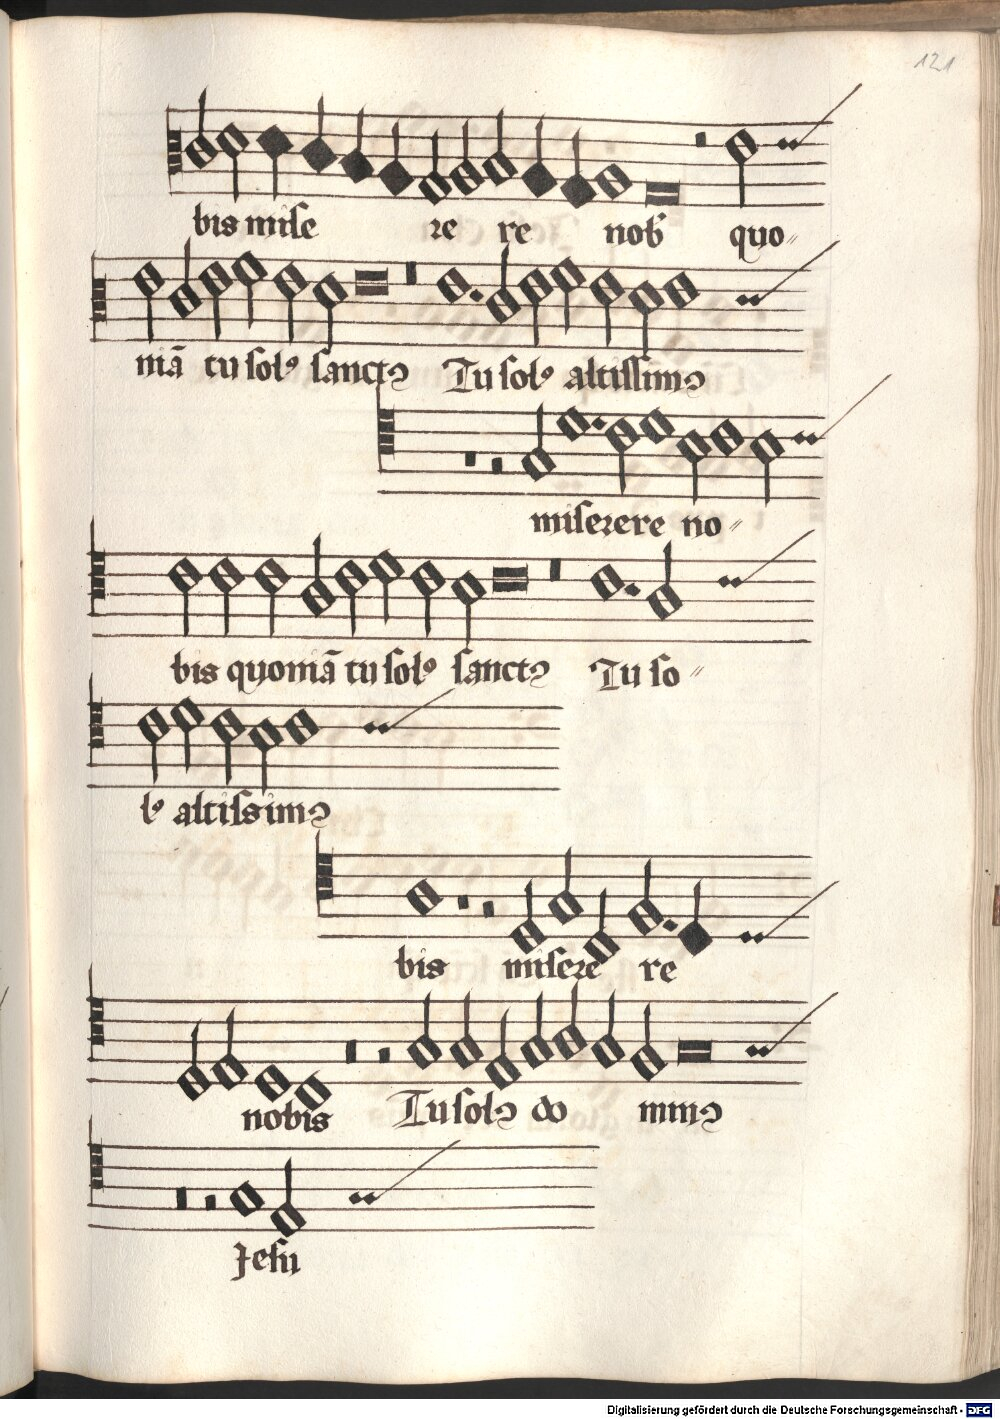 121
bis mise re re nob quo
niā tu sol sanct Tu sol altissim
miserere no
bis quoniā tu sol sanct Tu so
l altissim
bis misere re
nobis Tu sol do min
Jesu
Digitalisierung gefördert durch die Deutsche Forschungsgemeinschaft - DFG